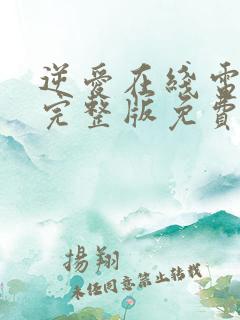 逆愛在綫雷
完整版免費
揚翔
未經同意禁止轉載